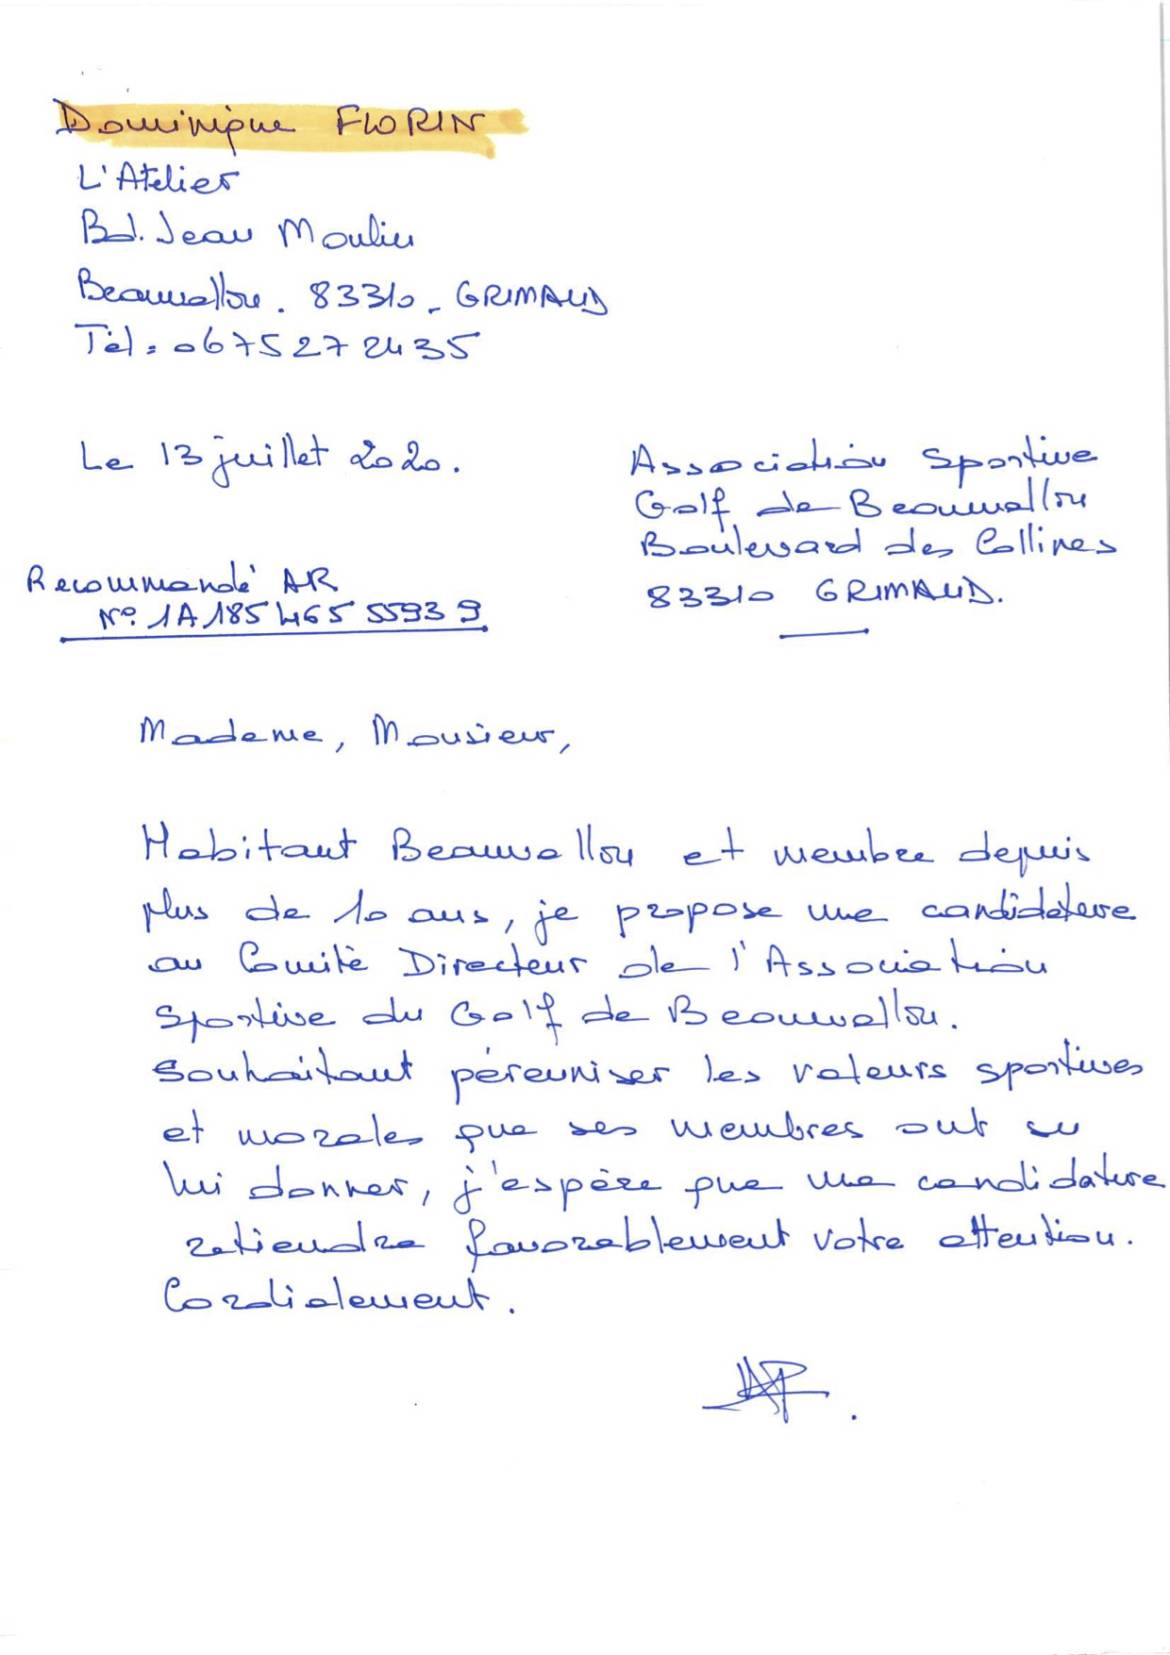 Dominique FLORIN
L'Atelier
Bd. Jean Moulin
Beauvallon. 83310 - GRIMAUD
Tèl : 0675272435
Le 13 juillet 2020.
Association Sportive
Golf de Beauvallon
Boulevard des Collines
83310 GRIMAUD.
Recommandé AR
N° 1A 185 465 5593 9
Madame, Monsieur,
Habitant Beauvallon et membre depuis
plus de 10 ans, je propose une candidature
au Comité Directeur de l'Association
Sportive du Golf de Beauvallon.
Souhaitant péreuniser les valeurs sportives
et morales que ses membres ont su
lui donner, j'espère que ma candidature
retiendra favorablement votre attention.
Cordialement.